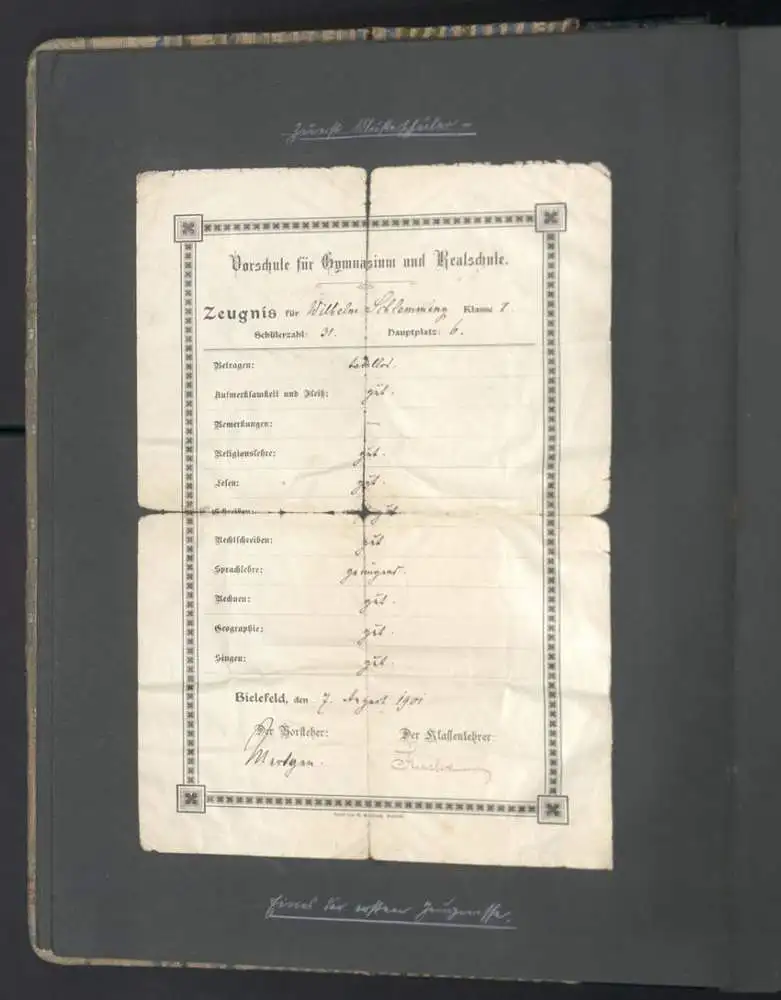 Zuerst Musterschüler –
Vorschule für Gymnasium und Realschule.
Zeugnis für Wilhelm Schlemming Klasse 1.
Schülerzahl: 31. Hauptplatz: 6.
Betragen: tadellos.
Aufmerksamkeit und Fleiß: gut.
Bemerkungen: —
Religionslehre: gut.
Lesen: gut.
Schreiben: gut.
Rechtschreiben: gut
Sprachlehre: genügend.
Rechnen: gut.
Geographie: gut.
Singen: gut.
Bielefeld, den 7. August 1901
Der Vorsteher: Der Klassenlehrer
Mertgen.
Eines der ersten Zeugnisse.